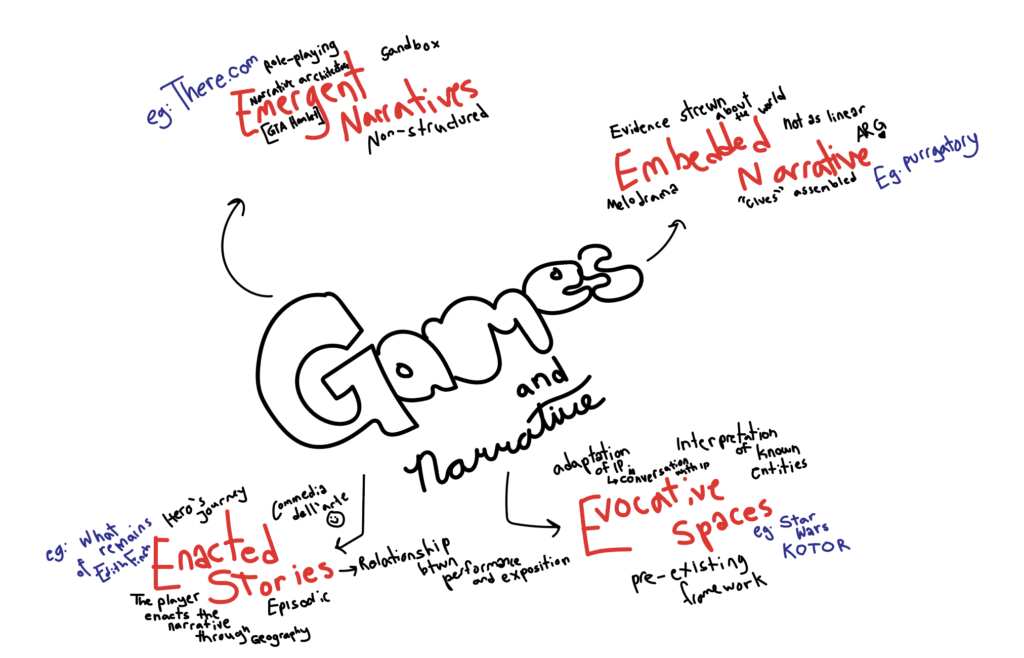 eg: There.com
role-playing
sandbox
Narrative architecture
Emergent
[GTA Hamlet]
Narratives
Non-structured
Evidence strewn
about
the world
not as linear
ARG
Embedded
Narrative
Melodrama
"clues" assembled
Eg. purrgatory
Games
and
Narrative
adaptation
of IP
↳ conversation
with IP
Interpretation
of known
entities
Evocative
Spaces
eg: Star
Wars
KOTOR
pre-existing
framework
eg: What
remains
of Edith Finch
Hero's
journey
Commedia
dell'arte
Enacted
Stories
→ Relationship
btwn
performance
and exposition
The player
enacts the
narrative
through Geography
Episodic